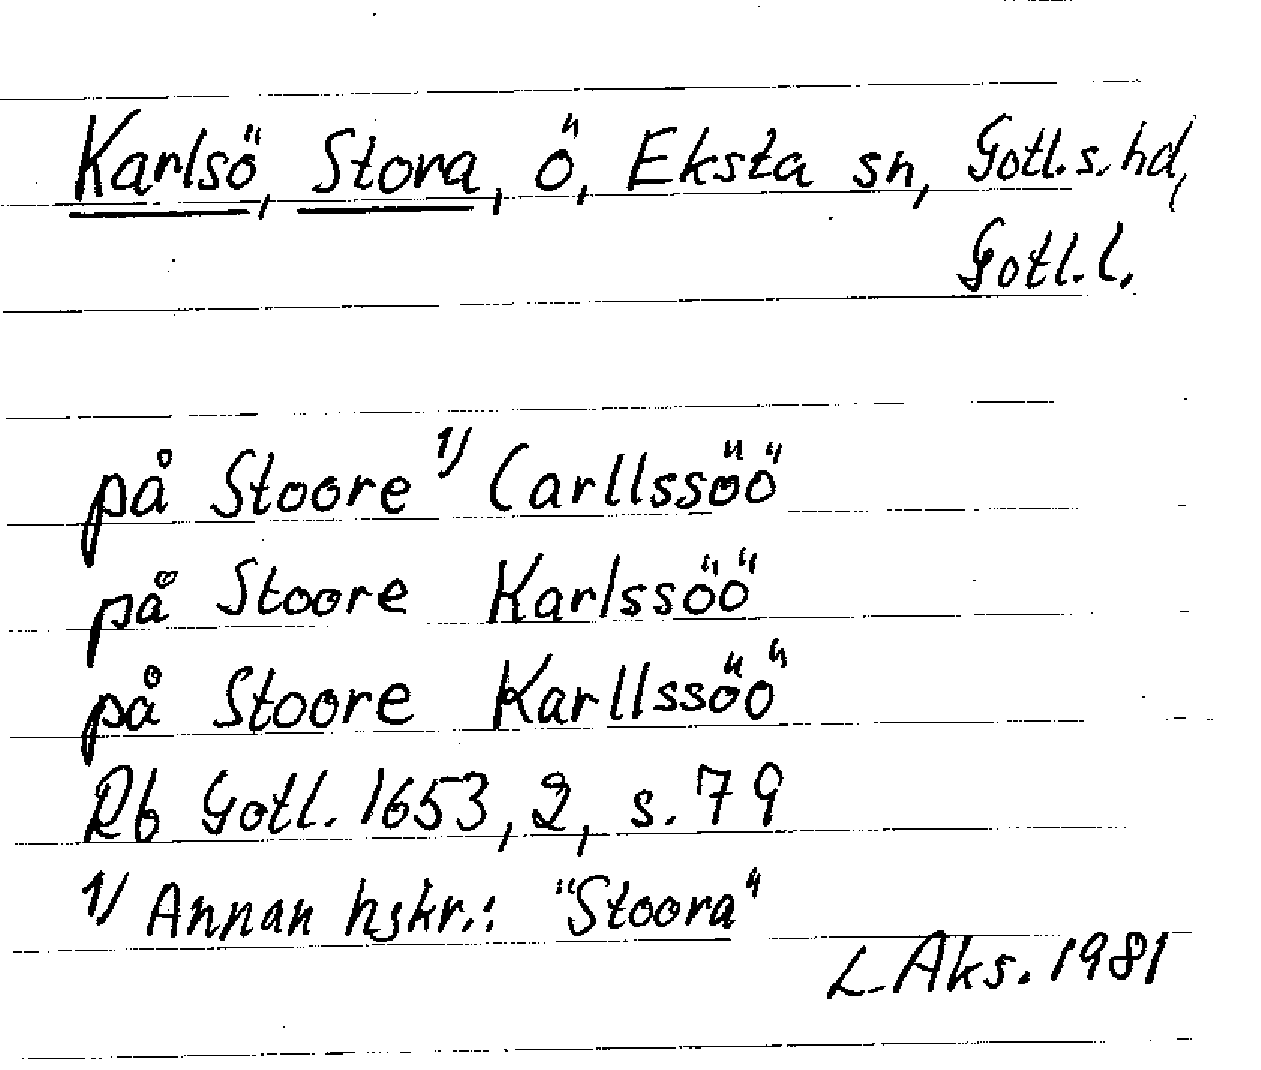 Karlsö, Stora, ö, Eksta sn, Gotl. s. hd,
Gotl. l.
på Stoore 1) Carllssöö
på Stoore Karlssöö
på Stoore Karllssöö
Rb Gotl. 1653, 2, s. 79
1) Annan hskr.: "Stoora"
L Aks. 1981